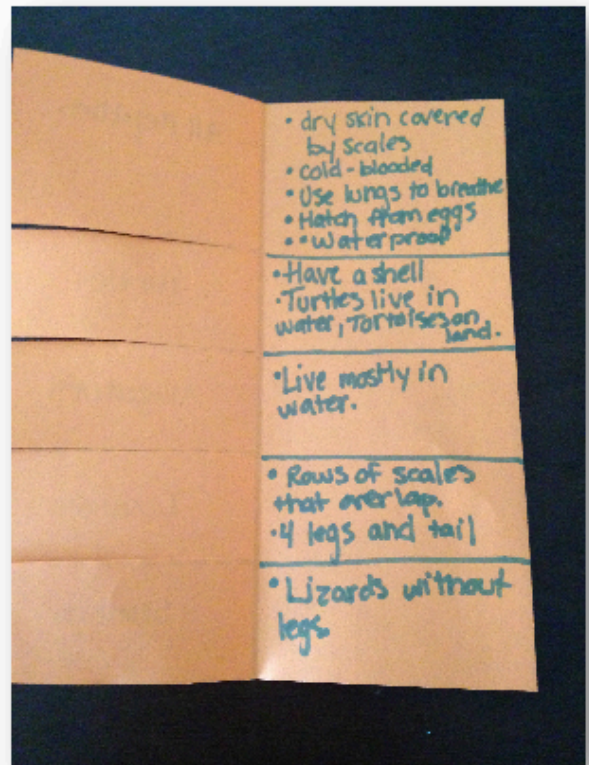 • dry skin covered
by scales
• cold-blooded
• Use lungs to breathe
• Hatch from eggs
• • Waterproof
• Have a shell
• Turtles live in
water, Tortoises on
land.
• Live mostly in
water.
• Rows of scales
that overlap.
• 4 legs and tail
• Lizards without
legs.